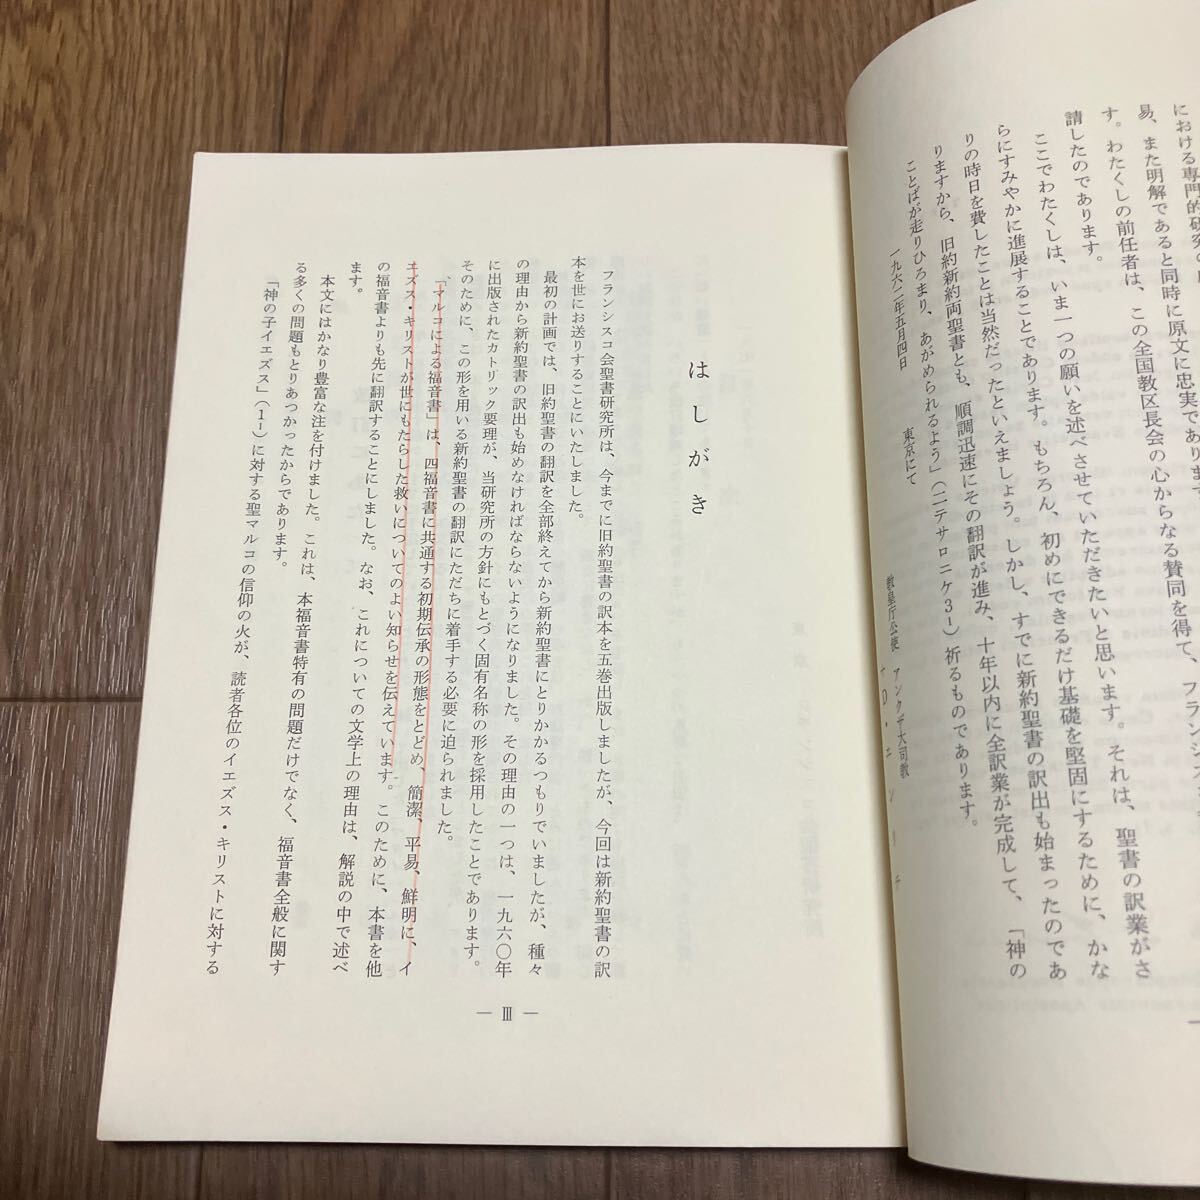 における専門的研究の
易、また明解であると同時に原文に忠実であります
す。わたくしの前任者は、この全国教区長会の心からなる賛同を得て、フランシス
請したのであります。
ここでわたくしは、いま一つの願いを述べさせていただきたいと思います。それは、聖書の訳業がさ
らにすみやかに進展することであります。もちろん、初めにできるだけ基礎を堅固にするために、かな
りの時日を費したことは当然だったといえましょう。しかし、すでに新約聖書の訳出も始まったのであ
りますから、旧約新約両聖書とも、順調迅速にその翻訳が進み、十年以内に全訳業が完成して、「神の
ことばが走りひろまり、あがめられるよう」(二テサロニケ3-1)祈るものであります。
一九六二年五月四日 東京にて
教皇庁公使 大司教
はしがき
フランシスコ会聖書研究所は、今までに旧約聖書の訳本を五巻出版しましたが、今回は新約聖書の訳
本を世にお送りすることにいたしました。
最初の計画では、旧約聖書の翻訳を全部終えてから新約聖書にとりかかるつもりでいましたが、種々
の理由から新約聖書の訳出も始めなければならないようになりました。その理由の一つは、一九六〇年
に出版されたカトリック要理が、当研究所の方針にもとづく固有名称の形を採用したことであります。
そのために、この形を用いる新約聖書の翻訳にただちに着手する必要に迫られました。
「マルコによる福音書」は、四福音書に共通する初期伝承の形態をとどめ、簡潔、平易、鮮明に、イ
エズス・キリストが世にもたらした救いについてのよい知らせを伝えています。このために、本書を他
の福音書よりも先に翻訳することにしました。なお、これについての文学上の理由は、解説の中で述べ
ます。
本文にはかなり豊富な注を付けました。これは、本福音書特有の問題だけでなく、福音書全般に関す
る多くの問題もとりあつかったからであります。
「神の子イエズス」(1-1)に対する聖マルコの信仰の火が、読者各位のイエズス・キリストに対する
— Ⅲ —